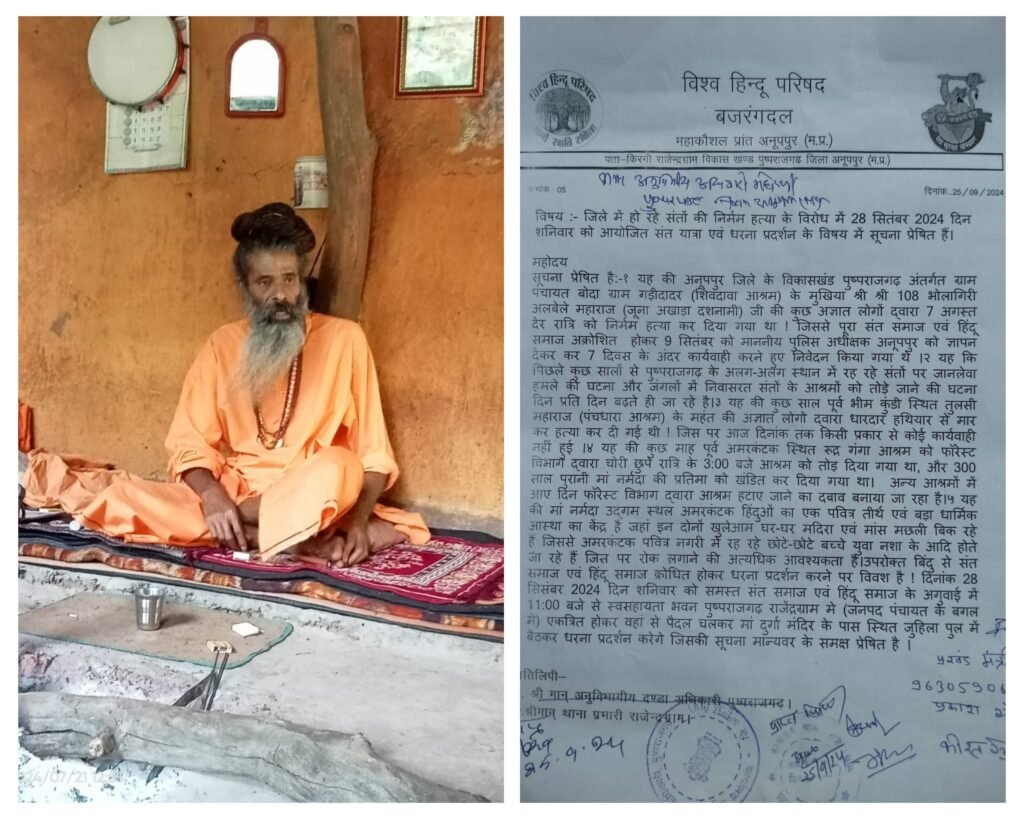 24/07/21 12
विश्व हिन्दू परिषद
बजरंगदल
महाकौशल प्रांत अनूपपुर (म.प्र.)
पता–किरगी राजेन्द्रग्राम विकास खण्ड पुष्पराजगढ़ जिला अनूपपुर (म.प्र.)
05
दिनांक..25/09/2024
विषय :- जिले में हो रहे संतों की निर्मम हत्या के विरोध में 28 सितंबर 2024 दिन
शनिवार को आयोजित संत यात्रा एवं धरना प्रदर्शन के विषय में सूचना प्रेषित हैं।
महोदय
सूचना प्रेषित है:-१ यह की अनूपपुर जिले के विकासखंड पुष्पराजगढ़ अंतर्गत ग्राम
पंचायत बोदा ग्राम गड़ीदादर (शिवदावा आश्रम) के मुखिया श्री श्री 108 भोलागिरी
अलबेले महाराज (जूना अखाड़ा दशनामी) जी की कुछ अज्ञात लोगों द्वारा 7 अगस्त
देर रात्रि को निर्मम हत्या कर दिया गया था ! जिससे पूरा संत समाज एवं हिंदू
समाज अक्रोशित होकर 9 सितंबर को माननीय पुलिस अधीक्षक अनूपपुर को ज्ञापन
देकर कर 7 दिवस के अंदर कार्यवाही करने हुए निवेदन किया गया थे ।२ यह कि
पिछले कुछ सालों से पुष्पराजगढ़ के अलग-अलग स्थान में रह रहे संतों पर जानलेवा
हमले की घटना और जंगलों में निवासरत संतों के आश्रमों को तोड़े जाने की घटना
दिन प्रति दिन बढ़ते ही जा रहे है।३ यह की कुछ साल पूर्व भीम कुंडी स्थित तुलसी
महाराज (पंचधारा आश्रम) के महंत की अज्ञात लोगो द्वारा धारदार हथियार से मार
कर हत्या कर दी गई थी ! जिस पर आज दिनांक तक किसी प्रकार से कोई कार्यवाही
नहीं हुई ।४ यह की कुछ माह पूर्व अमरकंटक स्थित रूद्र गंगा आश्रम को फॉरेस्ट
विभाग द्वारा चोरी छुपे रात्रि के 3:00 बजे आश्रम को तोड़ दिया गया था, और 300
साल पुरानी मां नर्मदा की प्रतिमा को खंडित कर दिया गया था। अन्य आश्रमों में
आए दिन फॉरेस्ट विभाग द्वारा आश्रम हटाए जाने का दबाव बनाया जा रहा है।५ यह
की मां नर्मदा उदगम स्थल अमरकंटक हिंदुओं का एक पवित्र तीर्थ एवं बड़ा धार्मिक
आस्था का केंद्र है जहां इन दोनों खुलेआम घर-घर मदिरा एवं मांस मछली बिक रहे
हैं जिससे अमरकंटक पवित्र नगरी में रह रहे छोटे-छोटे बच्चे युवा नशा के आदि होते
जा रहे हैं जिस पर रोक लगाने की अत्यधिक आवश्यकता हैं।उपरोक्त बिंदु से संत
समाज एवं हिंदू समाज क्रोधित होकर धरना प्रदर्शन करने पर विवश है ! दिनांक 28
सिसंबर 2024 दिन शनिवार को समस्त संत समाज एवं हिंदू समाज के अगुवाई में
11:00 बजे से स्वसहायता भवन पुष्पराजगढ़ राजेंद्रग्राम में (जनपद पंचायत के बगल
में) एकत्रित होकर वहां से पैदल चलकर मां दुर्गा मंदिर के पास स्थित जुहिला पुल में
बैठकर धरना प्रदर्शन करेंगे जिसकी सूचना मान्यवर के समक्ष प्रेषित है ।
96305906
प्रकाश
श्री मान् अनुविभागीय दण्डा अधिकारी पुष्पराजगढ़।
श्रीमान् थाना प्रभारी राजेन्द्रग्राम।
25/9/24